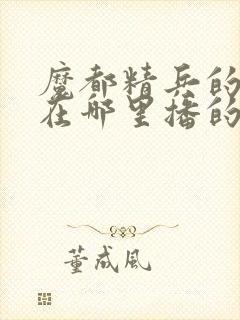 魔都精兵的
在哪里播的
董成风